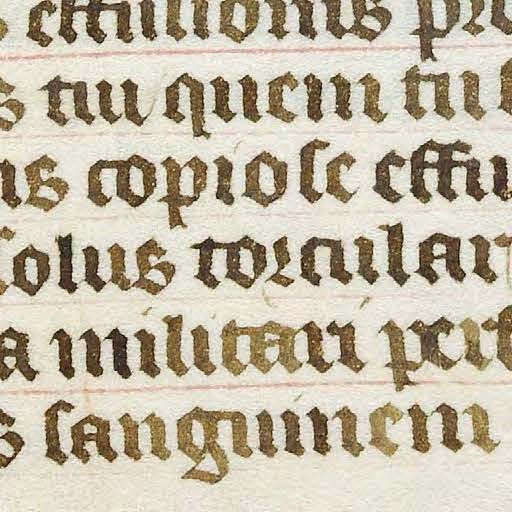 s effusionis pre
s tui quem tu
us copiose effu
solus torcular
a militari perf
s sanguinem